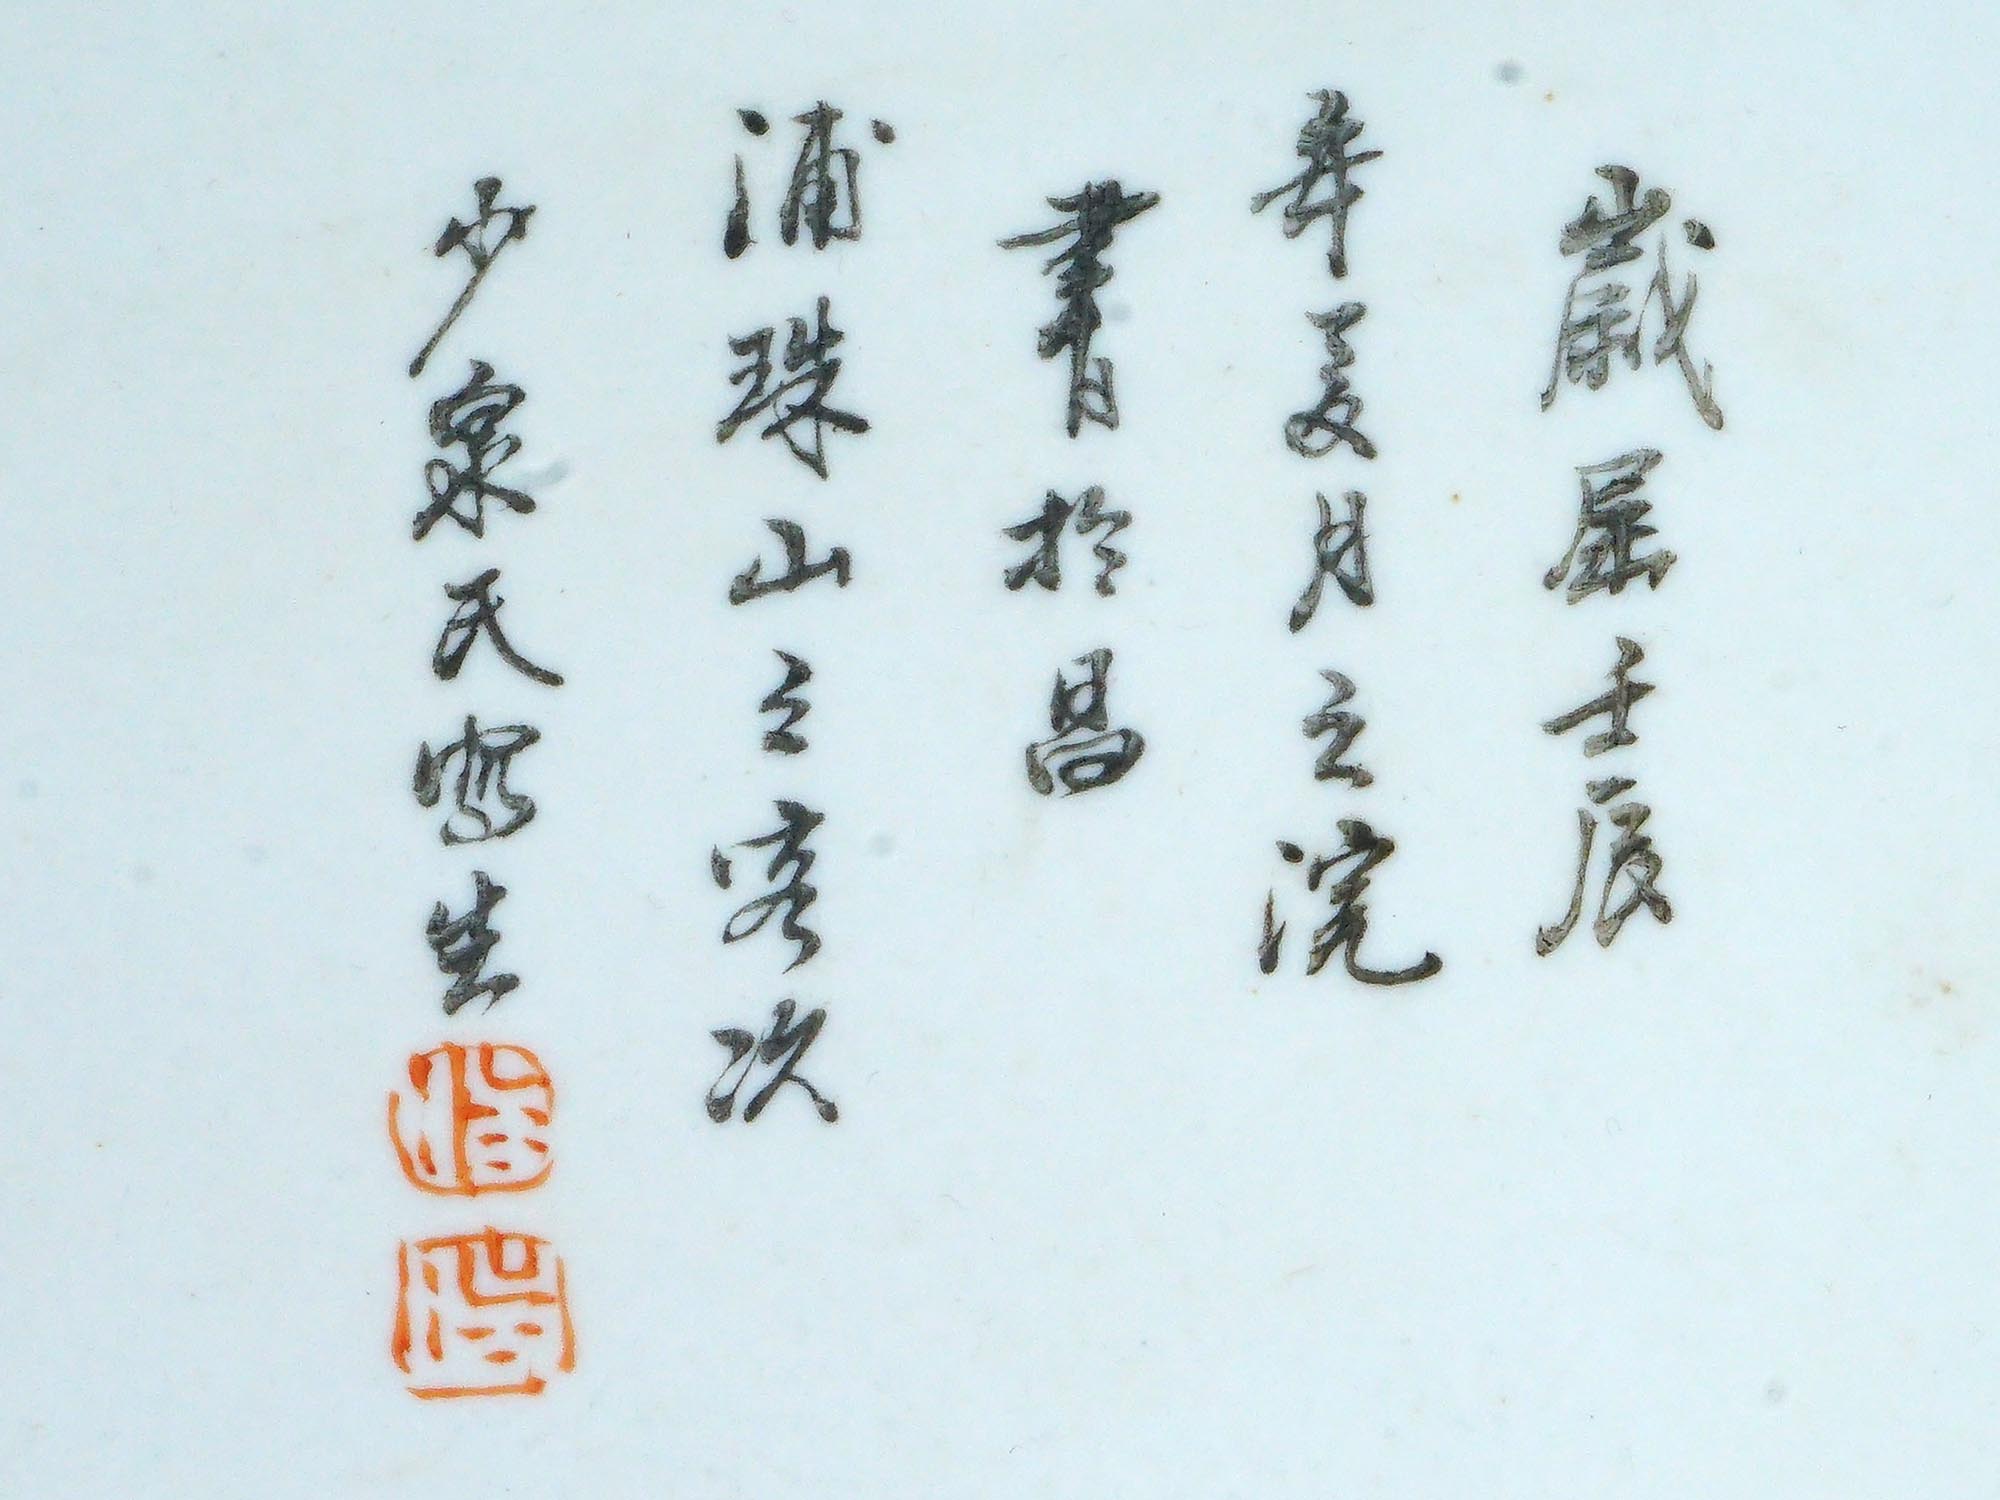 歲届壬辰
年夏月之浣
書於昌
浦珠山之客次
少泉氏寫生